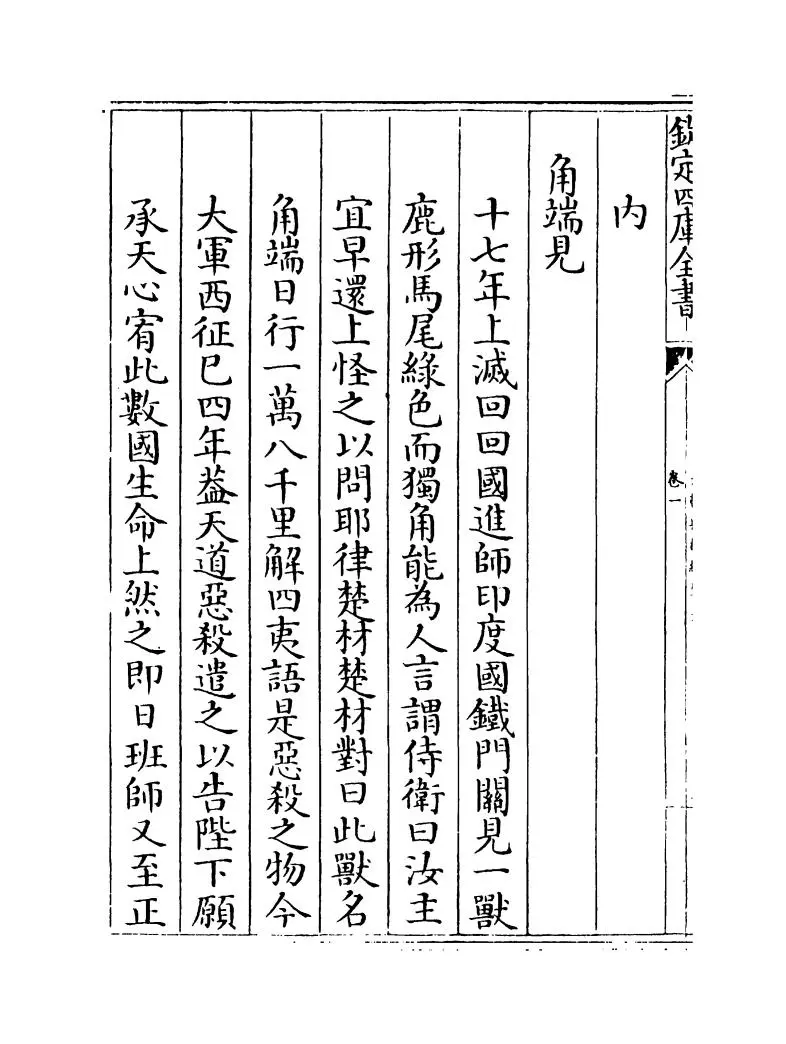 欽定四庫全書
卷一
內
角端見
十七年上滅回回國進師印度國鐵門關見一獸
鹿形馬尾綠色而獨角能為人言謂侍衛曰汝主
宜早還上怪之以問耶律楚材楚材對曰此獸名
角端日行一萬八千里解四夷語是惡殺之物今
大軍西征已四年葢天道惡殺遣之以告陛下願
承天心宥此數國生命上然之即日班師又至正